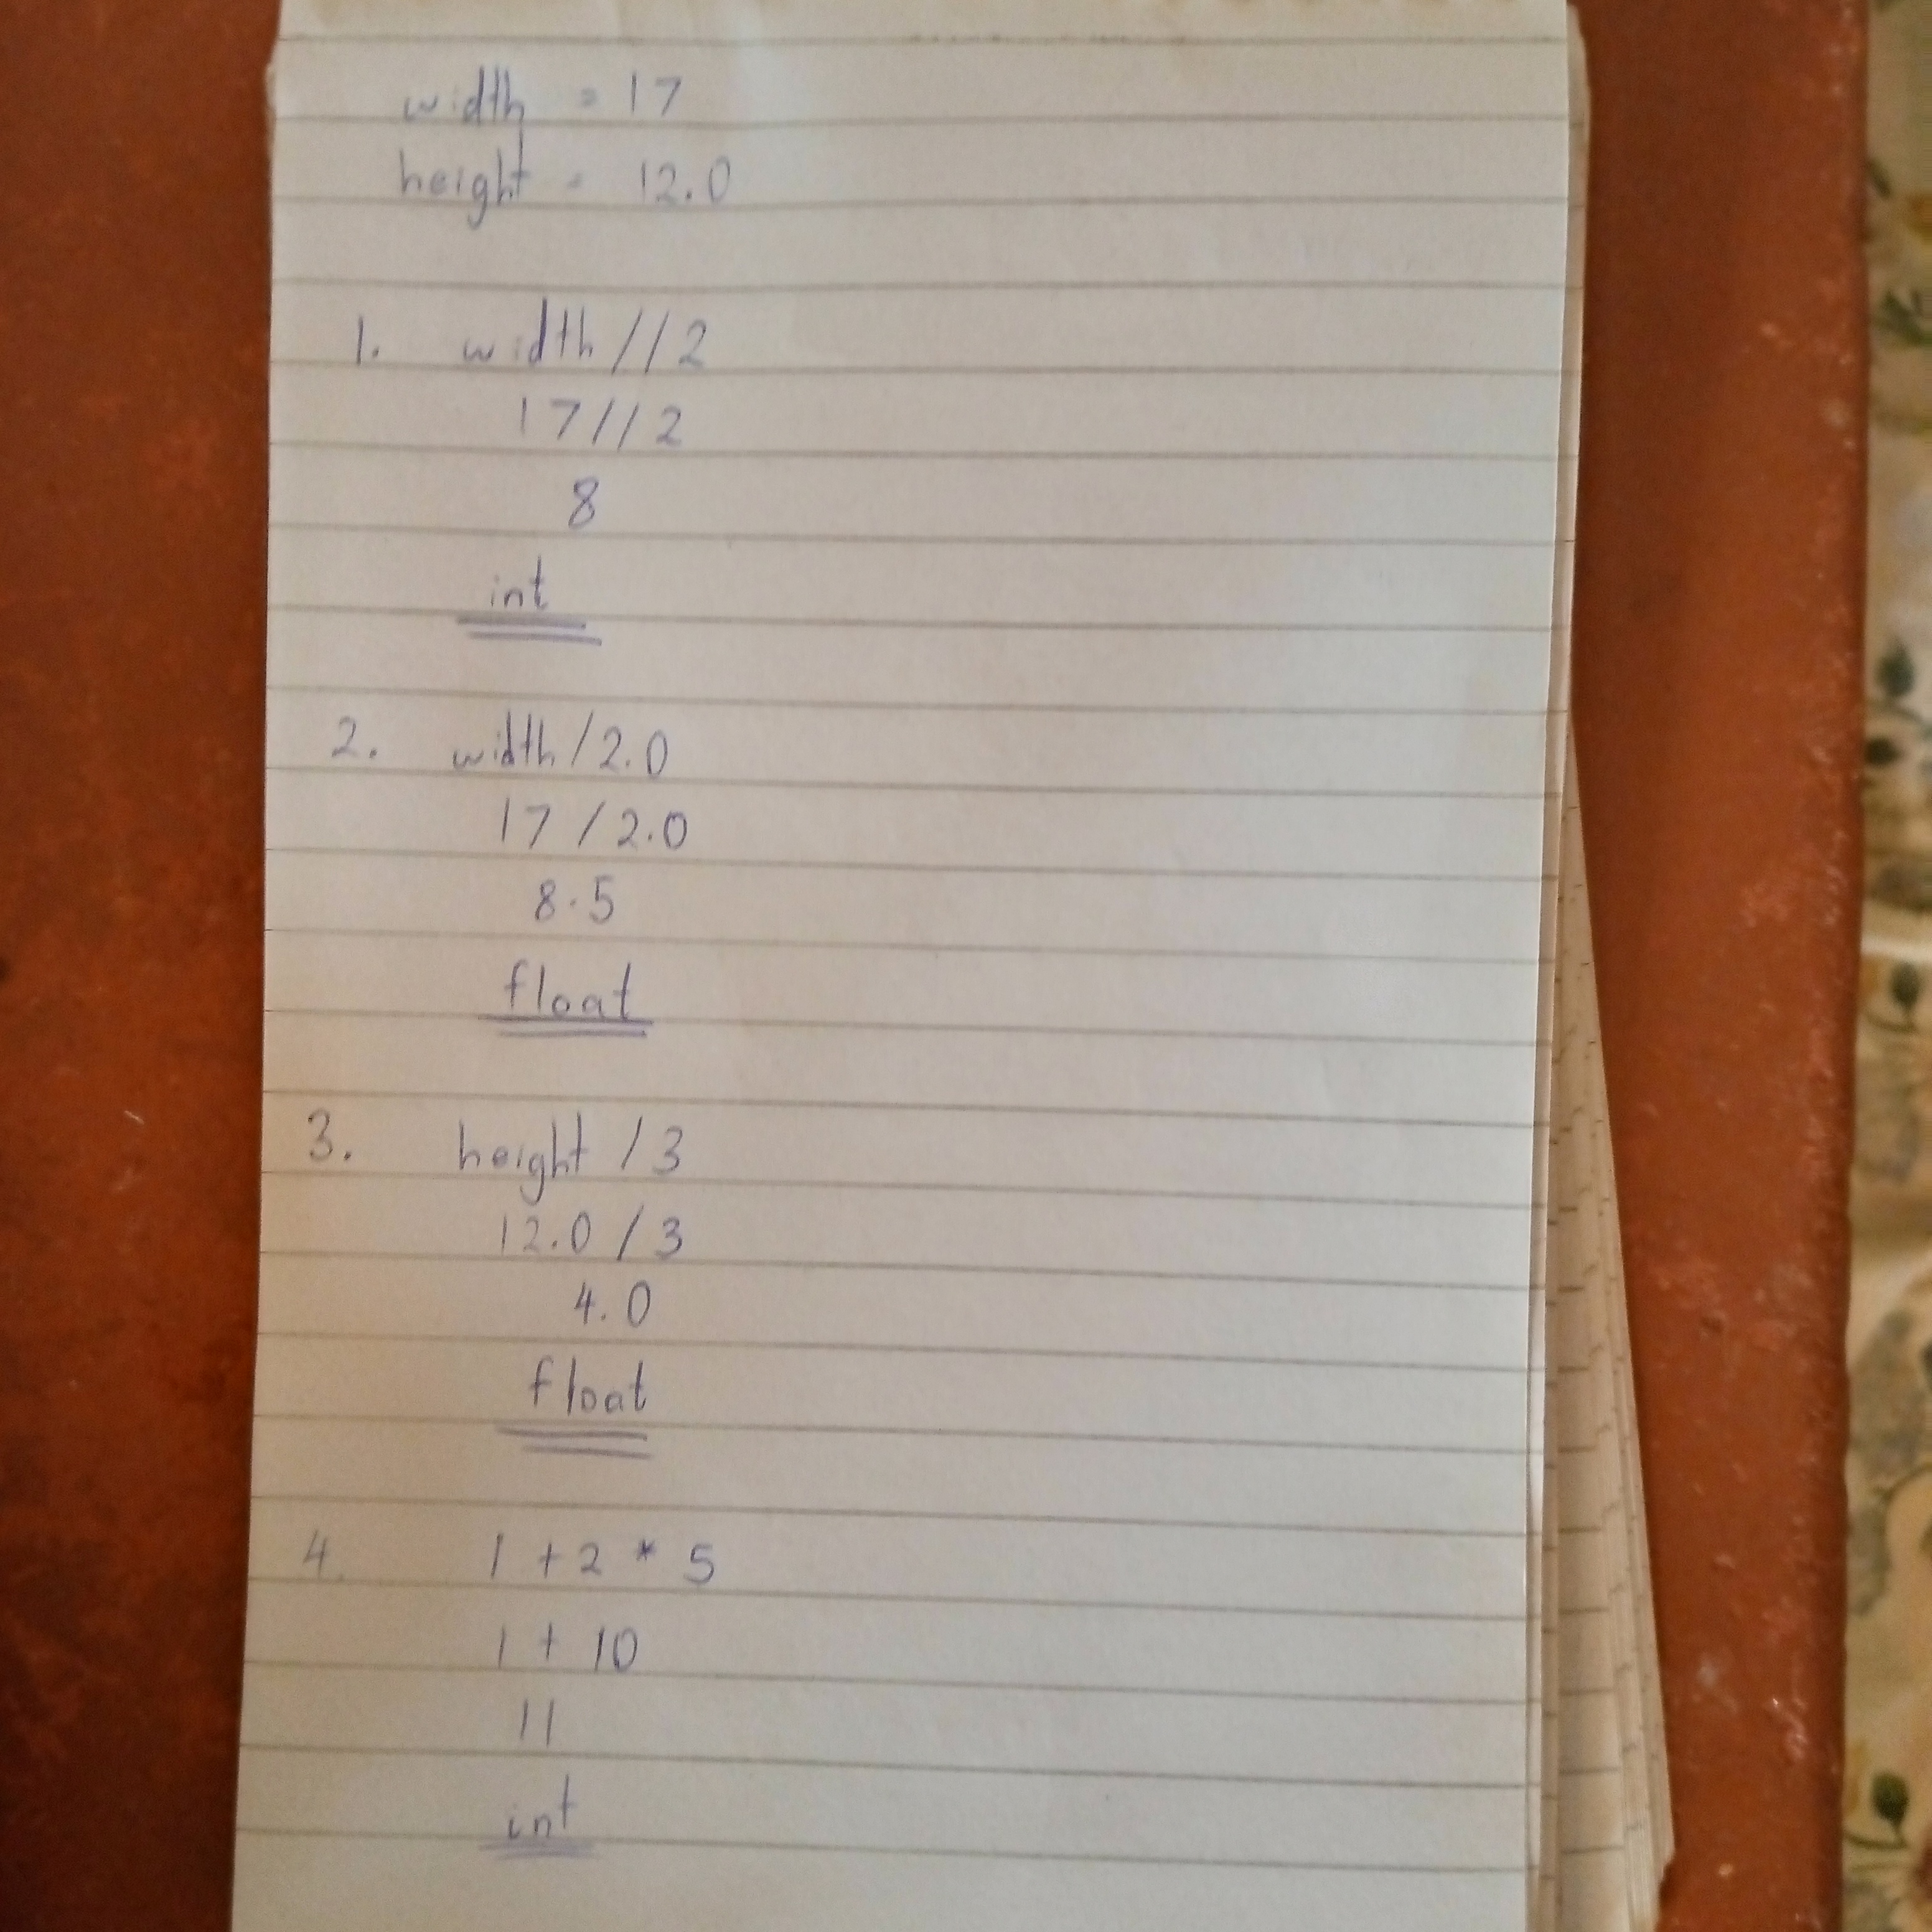 width = 17
height = 12.0
1. width // 2
17 // 2
8
int
2. width / 2.0
17 / 2.0
8.5
float
3. height / 3
12.0 / 3
4.0
float
4. 1 + 2 * 5
1 + 10
11
int